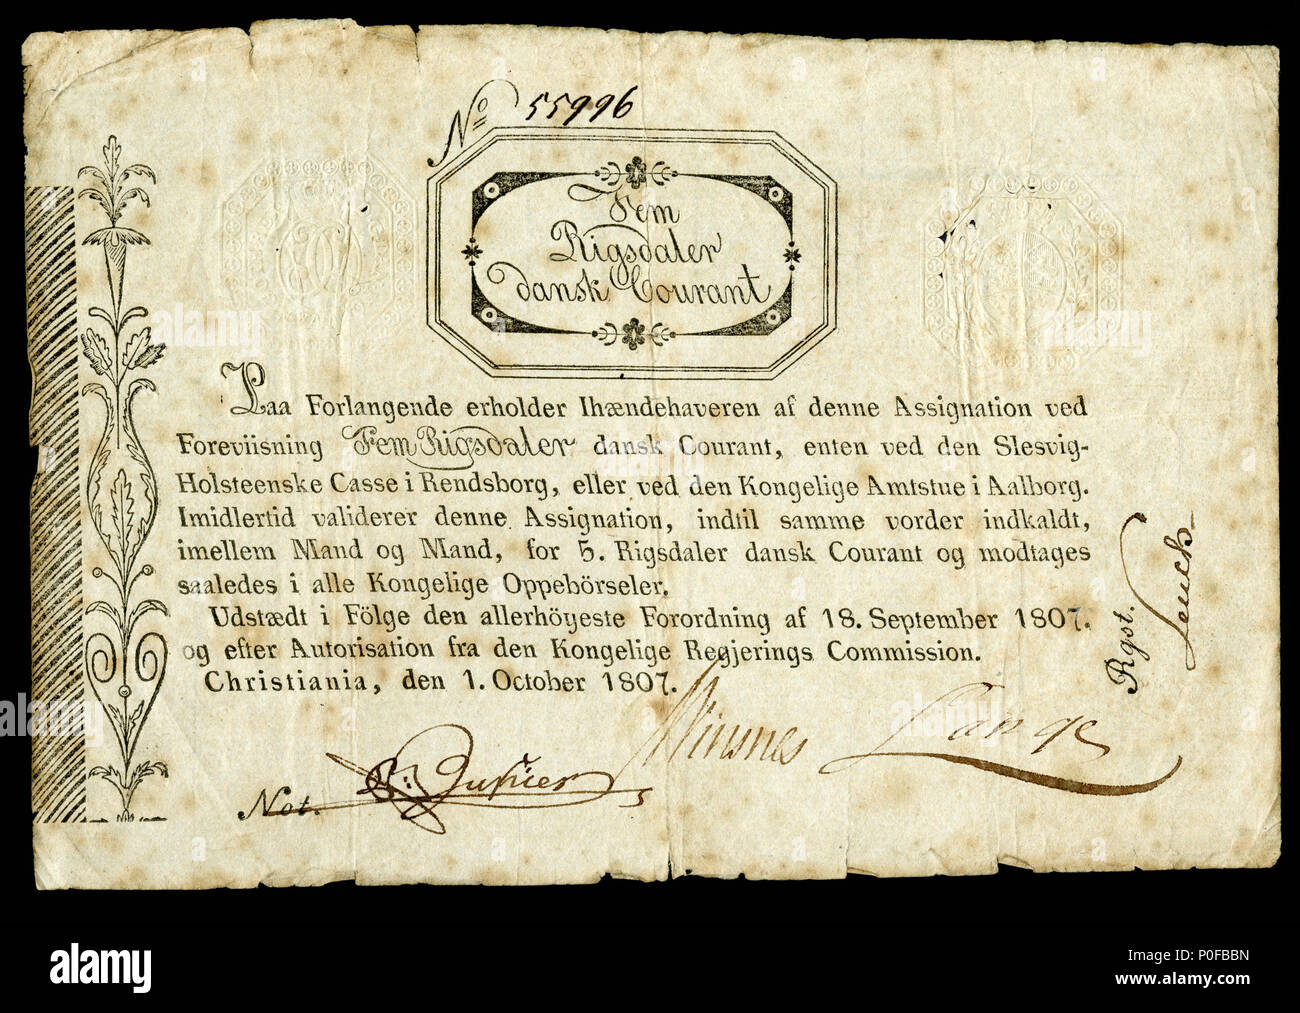 No 55996
Fem
Rigsdaler
dansk Courant
Paa Forlangende erholder Ihændehaveren af denne Assignation ved
Foreviisning Fem Rigsdaler dansk Courant, enten ved den Slesvig-
Holsteenske Casse i Rendsborg, eller ved den Kongelige Amtstue i Aalborg.
Imidlertid validerer denne Assignation, indtil samme vorder indkaldt,
imellem Mand og Mand, for 5. Rigsdaler dansk Courant og modtages
saaledes i alle Kongelige Oppebörseler.
Udstædt i Fölge den allerhöyeste Forordning af 18. September 1807.
og efter Autorisation fra den Kongelige Regjerings Commission.
Christiania, den 1. October 1807.
Rgst.
Not.
Lange
alamy stock photo
alamy
Image ID: P0FBBN
www.alamy.com